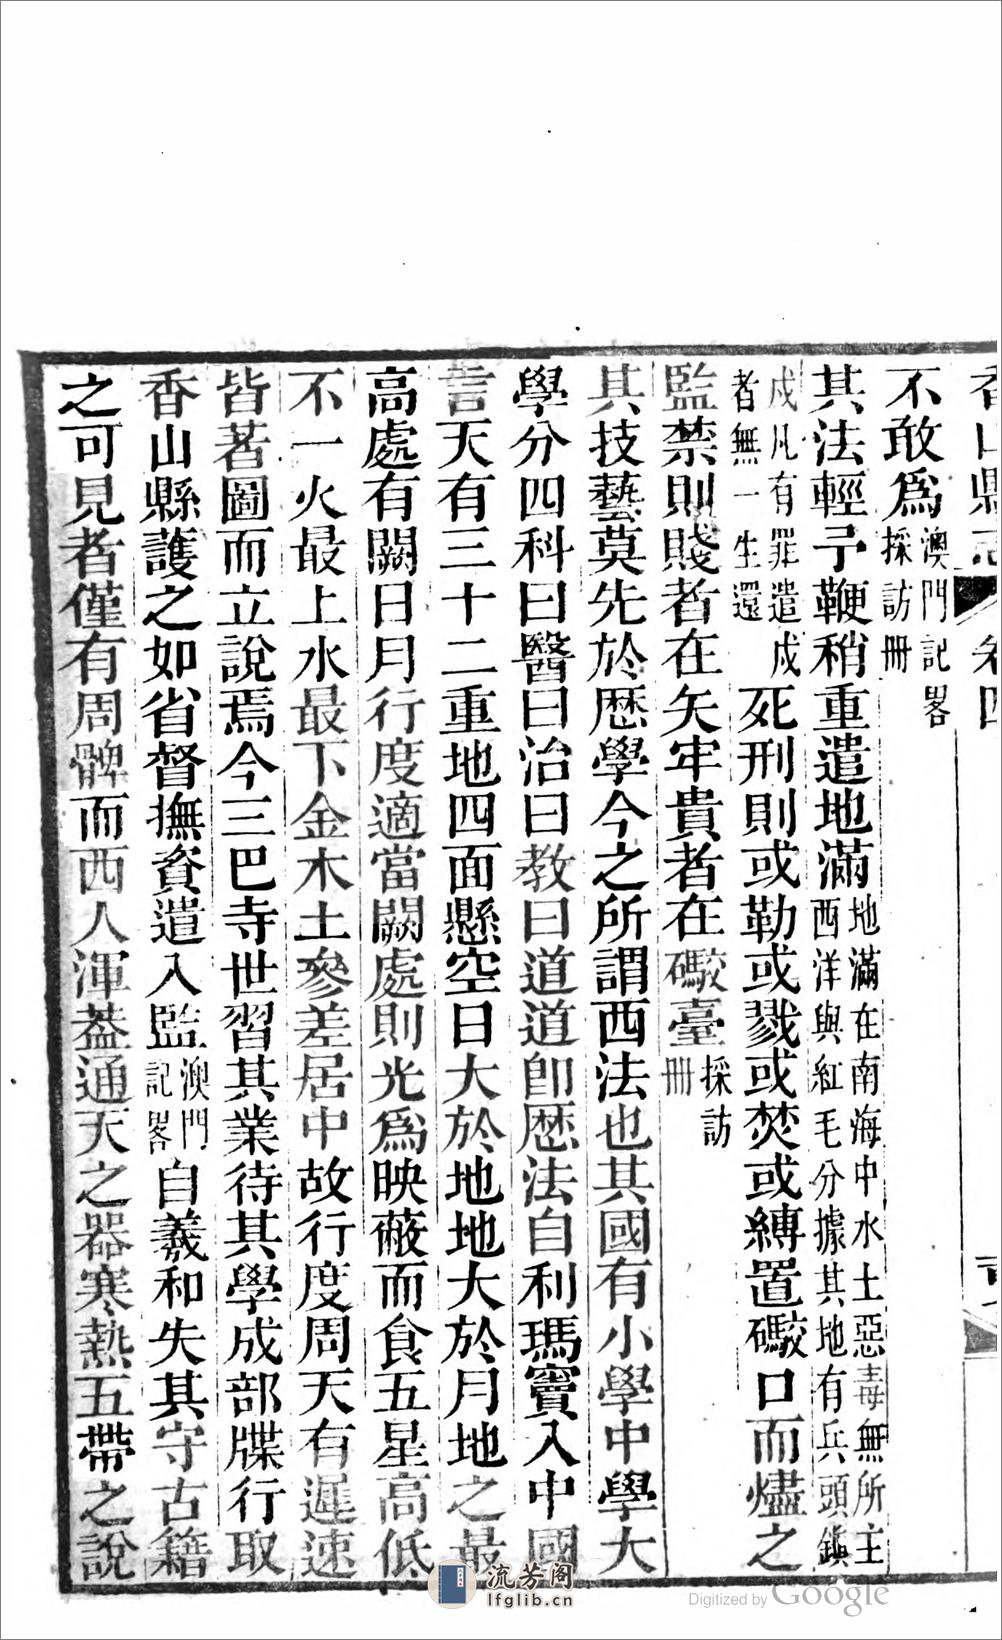 香山縣志 卷四
不敢爲澳門記畧採訪冊
其法輕予鞭稍重遣地滿地滿在南海中水土惡毒無所主西洋與紅毛分據其地有兵頭鎮
戍凡有罪遣戍者無一生還死刑則或勒或戮或焚或縛置礮口而燼之
監禁則賤者在矢牢貴者在礮臺採訪冊
其技藝莫先於歷學今之所謂西法也其國有小學中學大
學分四科曰醫曰治曰教曰道道卽歷法自利瑪竇入中國
言天有三十二重地四面懸空日大於地地大於月地之最
高處有闕日月行度適當闕處則光爲映蔽而食五星高低
不一火最上水最下金木土參差居中故行度周天有遲速
皆著圖而立說焉今三巴寺世習其業待其學成部牒行取
香山縣護之如省督撫資遣入監澳門記畧自羲和失其守古籍
之可見者僅有周髀而西人渾葢通天之器寒熱五帶之說
流芳阁
lfglib.cn
Digitized by Google